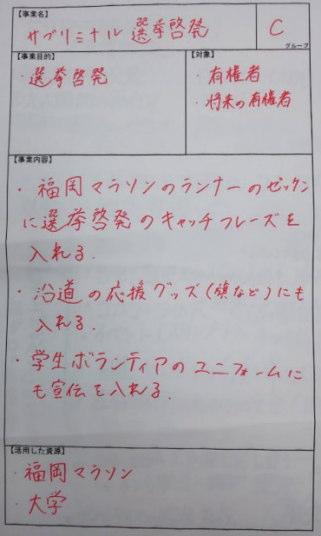 【事業名】
サブリミナル 選挙啓発
C
グループ
【事業目的】
・選挙啓発
【対象】
・有権者
・将来の有権者
【事業内容】
・福岡マラソンのランナーのゼッケン
に選挙啓発のキャッチフレーズを
入れる.
・沿道の応援グッズ(旗など)にも
入れる.
・学生ボランティアのユニフォームに
も宣伝を入れる.
【活用した資源】
・福岡マラソン
・大学